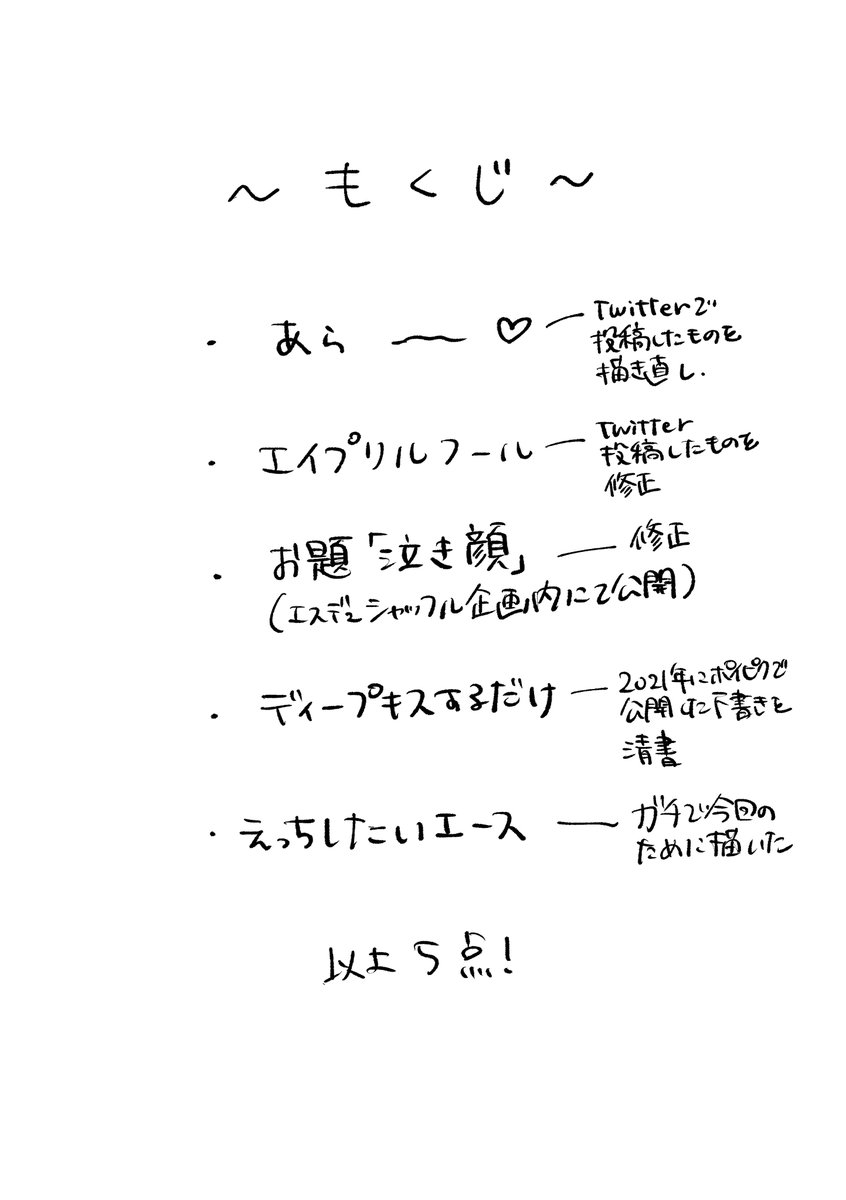 ～もくじ～
・あら〜〜♡ — Twitterで
投稿したものを
描き直し.
・エイプリルフール — Twitter
投稿したものを
修正
・お題「泣き顔」 — 修正
(エスデュシャッフル企画内にて公開)
・ディープキスするだけ — 2021年にポイピクで
公開した下書きを
清書
・えっちしたいエース — ガチで今回の
ために描いた
以上5点!